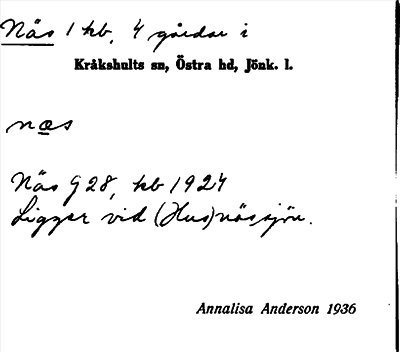 Näs 1 hb, 4 gårdar i
Kråkshults sn, Östra hd, Jönk. l.
næs
Näs G 28, kb 1924
Ligger vid (Hus)nässjön.
Annalisa Anderson 1936